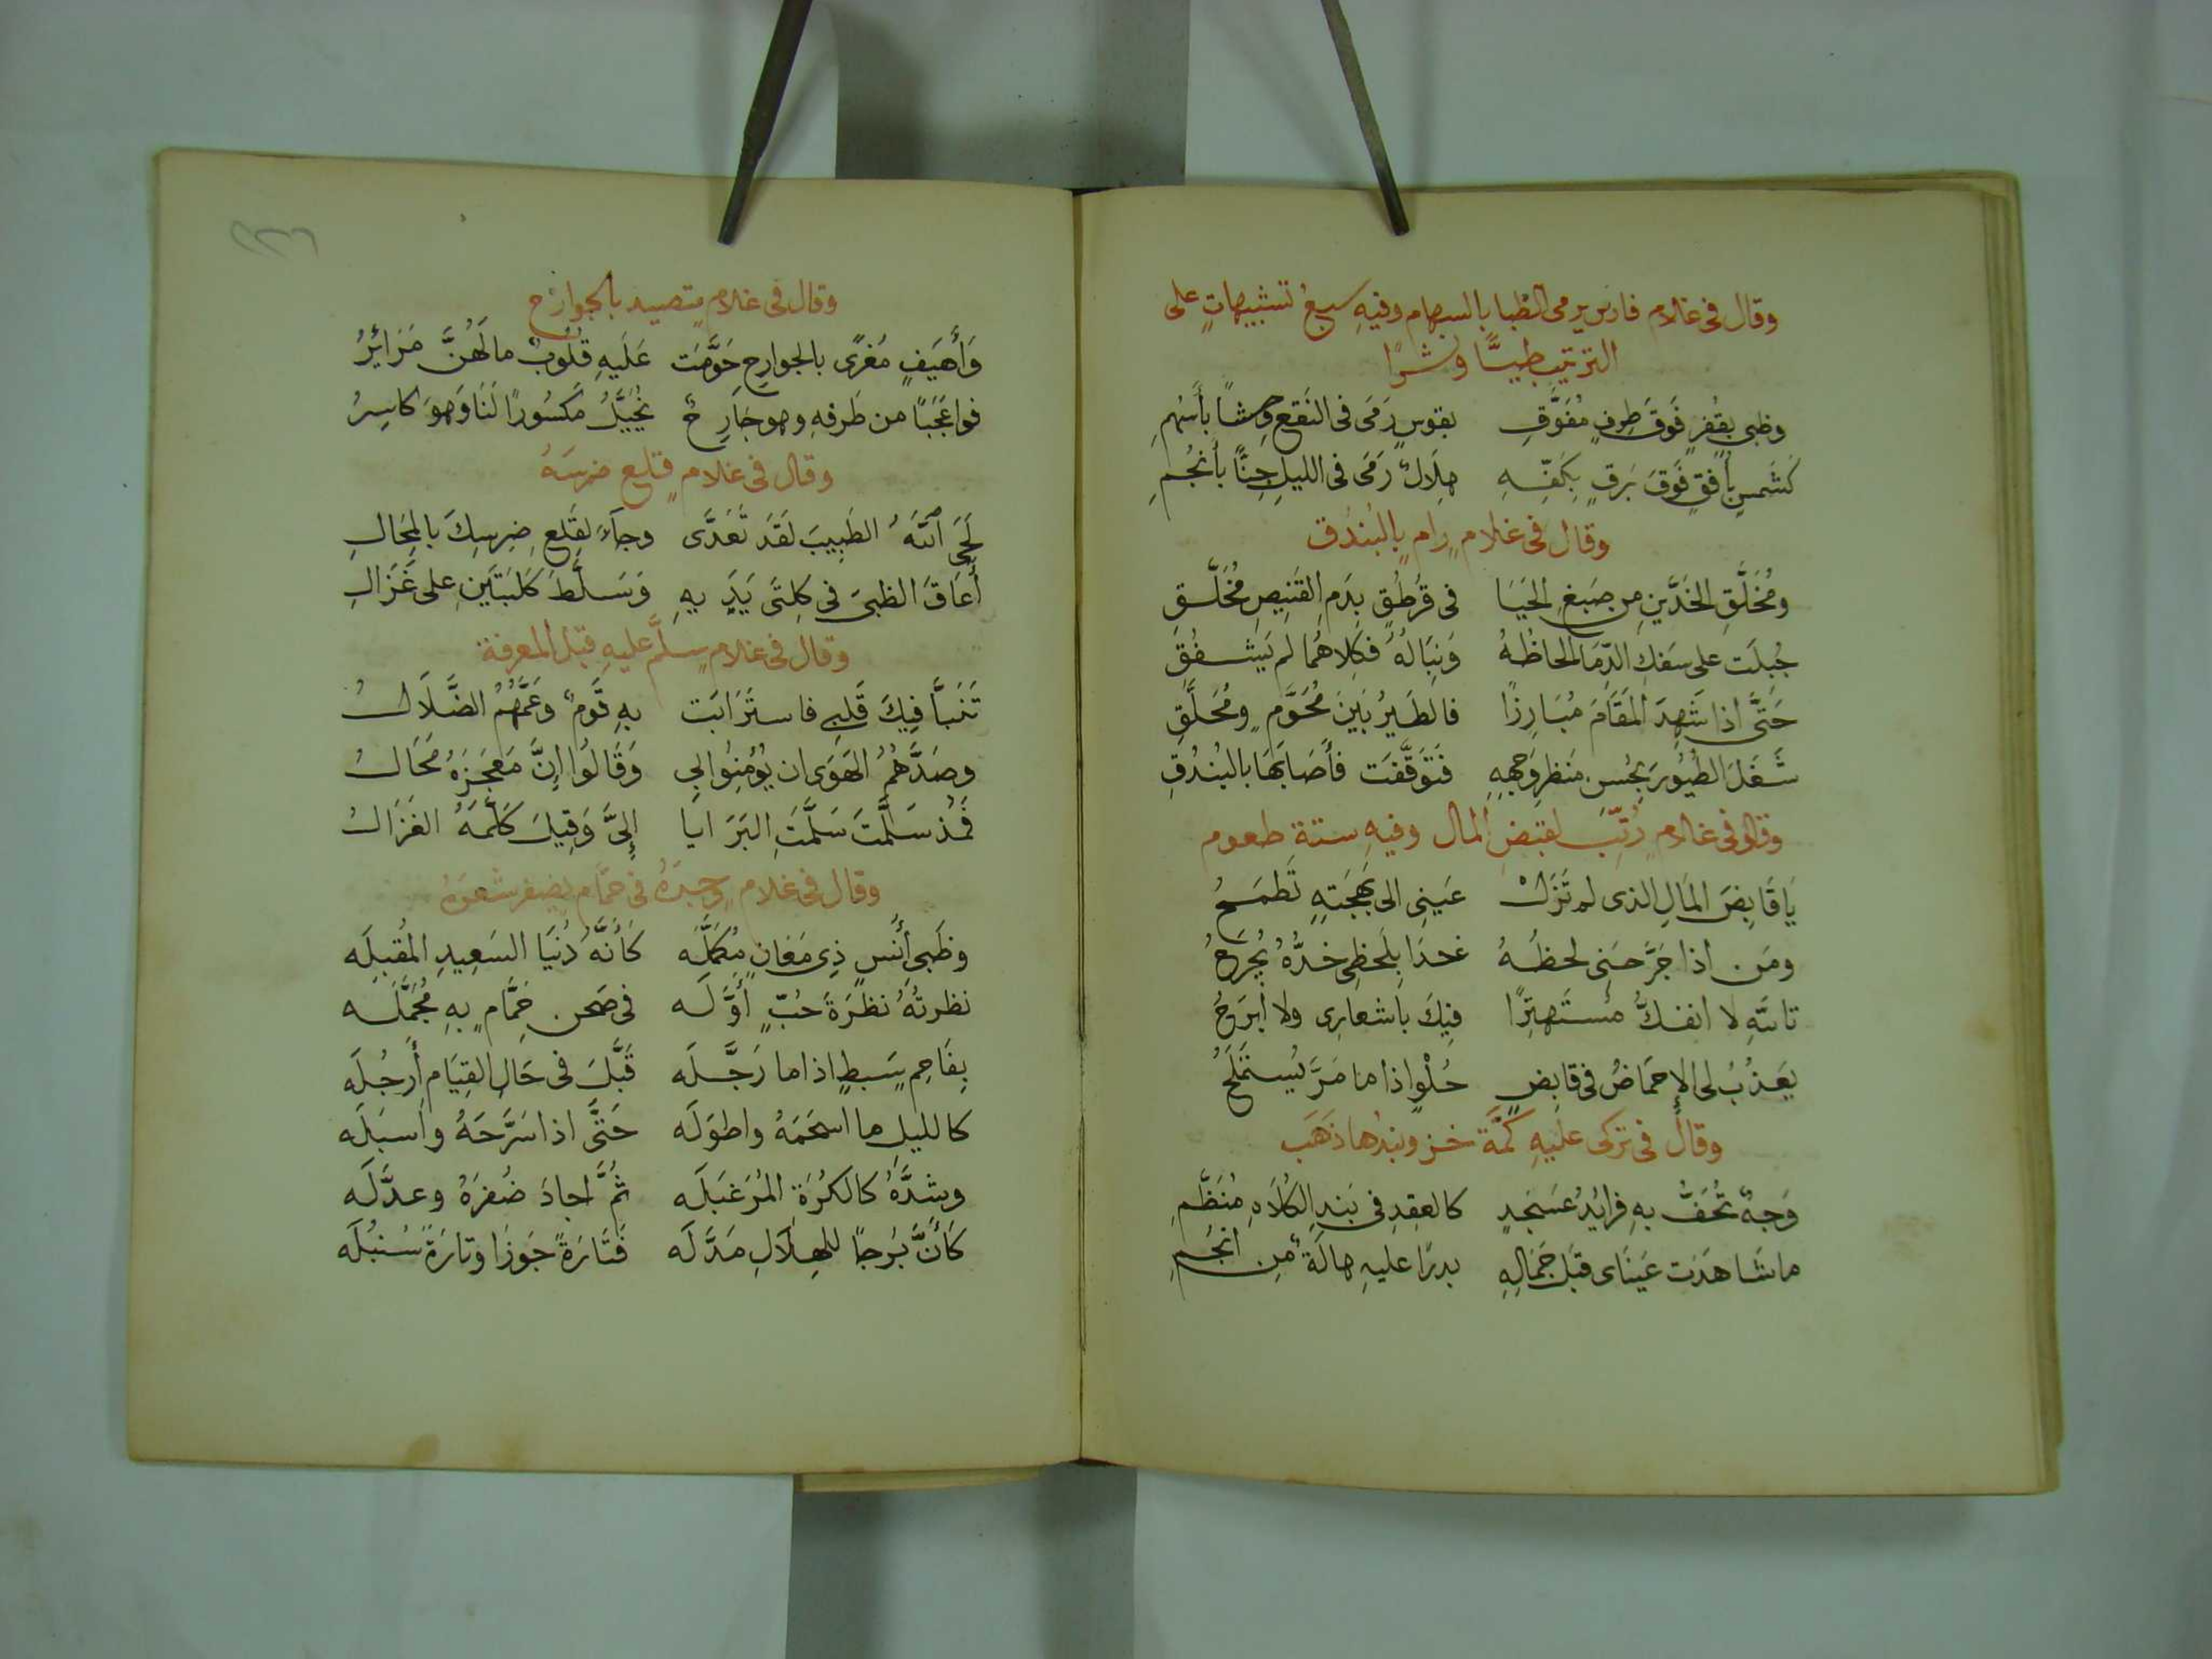 وقال فى غلام فارس يرمى الظبا بالسهام وفيه سبع تشبيهاتٍ على
الترتيب طيًّا ونشرًا
وظبى بقُفرٍ فَوقَ طِرفٍ مُفَوَّقِ بقوسٍ رَمَى فى النَقعِ وحشًا بأَسهُمِ
كَشَمسٍ بأُفقٍ فَوقَ بَرقٍ بِكَفِّهِ هِلَالٌ رَمَى فى الليلِ جِنًّا بأَنجُمِ
وقال فى غلامٍ رامٍ بالبُندُق
ومُخَلَّقِ الخَدَّينِ مِن صَبغِ الحَيَا فى قُرطُقٍ بِدَمِ القَنِيصِ مُخَلَّقِ
جُبلَت على سَفكِ الدِّمَا الحاظُهُ وَنِبَالُهُ فكِلاهُمَا لم يَشفُقِ
حَتَّى اذا شَهِدَ المَقَامَ مُبَارِزًا فالطَيرُ بَينَ مُحَوَّمٍ ومُحَلَّقِ
شَغَلَ الطُيُورَ بِحُسنِ مَنظرِ وَجهِهِ فَتَوَقَّفَت فأَصَابَهَا بالبُندُقِ
وقال فى غلامٍ رُتِّبَ لقبَضِ المال وفيهِ ستةِ طعوم
يَا قَابِضَ المَالِ الذى لم تَزَلْ عَينِى الى بَهجَتِهِ تَطمَحُ
ومَن اذا جَرَّحَنِى لحظُهُ غدَا بِلَحظِى خدُّهُ يُجرَحُ
تاللهِ لا انفكُّ مُستَهتِرًا فِيكَ باشعارِى ولا ابرَحُ
يَعذُبُ لى الإحمَاضُ فى قابِضٍ حُلْوٍ اذا ما مَرَّ يُستَملَحُ
وقال فى تركى علَيهِ كمَّة خز وبندها ذَهَب
وَجهٌ تُحَفُّ بهِ فرائِدُ عَسجَدٍ كالعِقدِ فى بَندِ الكُلَاهِ مُنَظَّمِ
ما شَاهَدَت عَينَاى قَبلَ جَمَالِهِ بدرًا عليهِ هالَةٌ مِن انجُمِ
وقال فى غلامٍ متصيد بالجوارح
وَأَهيَفٍ مُغرًى بالجوارحِ حَوَّمَت عَلَيهِ قلُوبٌ ما لَهُنَّ مَرَائِرُ
فواعَجَبًا من طَرفهِ وهو جَارِحٌ يُخَيَّلُ مَكسُورًا لَنَا وَهوَ كاسِرُ
وقال فى غلامٍ قلع ضرسَهُ
لَحَى اللهُ الطَبِيبَ لقَد تَعَدَّى وجاءَ لقَلعِ ضِرسِكَ بالمِحَالِ
أَعَاقَ الظبىَ فى كِلتَى يَدَيهِ وَسَلَّطَ كَلبَتَينِ على غَزَالِ
وقال فى غلامٍ سلَّم عليهِ قبل المعرفة
تَنَبَّأَ فِيكَ قَلبِى فاستَرَابَت بهِ قَومٌ وعَمَّهُمُ الضَّلَالُ
وصَدَّهُمُ الهَوَى ان يُؤمِنُوا بِى وَقَالُوا إِنَّ مُعجِزَهُ مُحَالُ
فَمُذ سَلَّمتَ سَلَّمَتِ البَرَايا إِلىَّ وَقِيلَ كَلَّمَهُ الغَزَالُ
وقال فى غلامٍ وجدَهُ فى حمَّامٍ يضفر شعرَهُ
وظَبىِ أُنسٍ ذِى مَعَانٍ مُكمَلَّه كأَنَّهُ دُنيَا السَعِيدِ المُقبِلَه
نظرتُهُ نظرَةَ حُبٍّ أَوَّلَه فى صَحنِ حَمَّامٍ بهِ مُجَمَّلَه
بِفَاحِمٍ سَبطٍ اذا ما رَجَّلَه قَبَّلَ فى حَالِ القِيَامِ أَرجُلَه
كالليلِ ما اسحَمَهُ واطوَلَه حَتَّى اذا سَرَّحَهُ واَسبَلَه
وشدَّهُ كالكُرَةِ المُزَغبَلَه ثُمَّ اجادَ ضَفرَهُ وعدَّلَه
كَأَنَّ بُرجًا للهِلَالِ مَدَّلَه فَتَارَةً جَوزَا وتارَةً سُنبُلَه